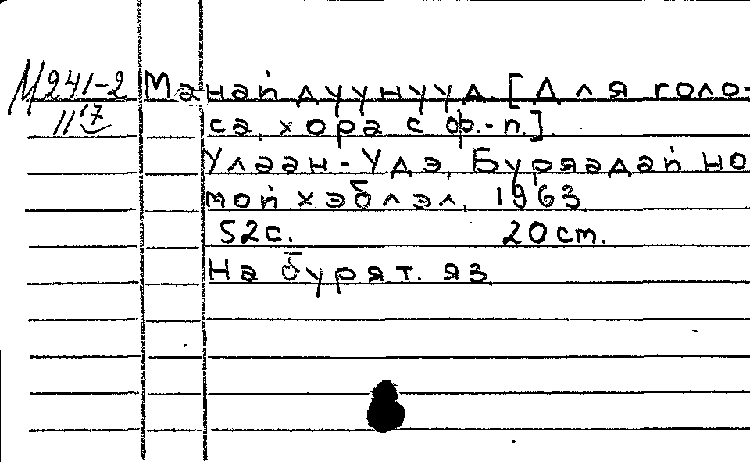 М241-2 Манай дуунууд. [Для голо-
117 са, хора с ф.-п.].
Улаан-Удэ, Буряадай но
мой хэблэл, 1963
52с. 20 cm.
На бурят. яз.